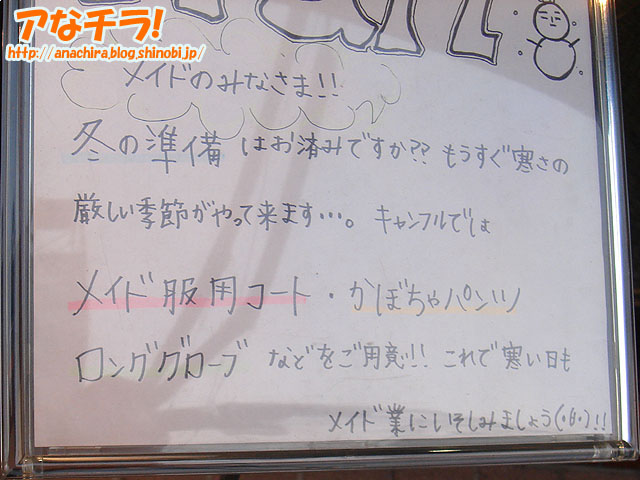 アなチラ!
http://anachira.blog.shinobi.jp/
メイドのみなさま!!
冬の準備 はお済みですか?? もうすぐ寒さの
厳しい季節がやって来ます・・・。 キャンフルでは
メイド服用コート・かぼちゃパンツ
ロンググローブ などをご用意!! これで寒い日も
メイド業にいそしみましょう(・θ・)!!